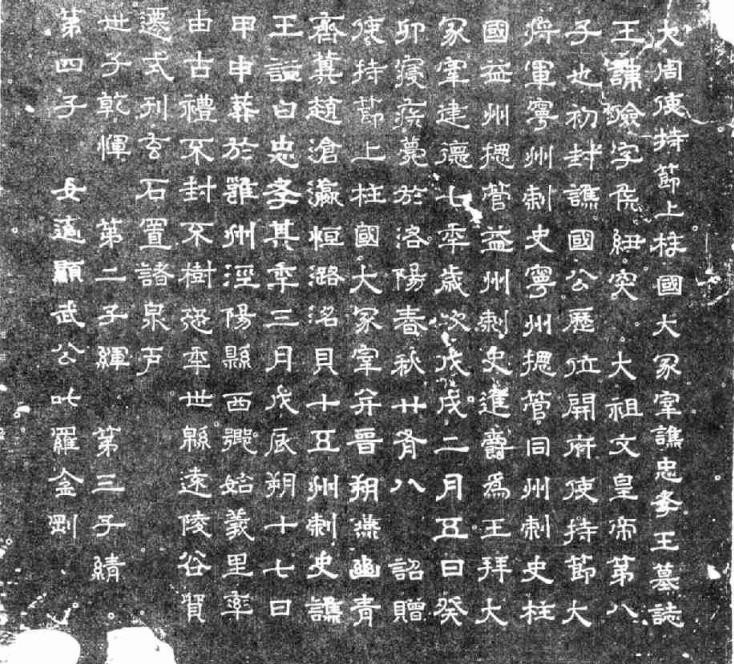 大周使持節上柱國大冢宰譙忠孝王墓誌
王諱儉字侯紐突 大祖文皇帝第八
子也初封譙國公歷位開府使持節大
將軍寧州刺史寧州揔管同州刺史柱
國益州揔管益州刺史進爵為王拜大
冢宰建德七年歲次戊戌二月五日癸
卯寢疾薨於洛陽春秋廿有八 詔贈
使持節上柱國大冢宰并晉朔燕幽青
齊冀趙滄瀛恒潞洺貝十五州刺史譙
王謚曰忠孝其年三月戊辰朔十七日
甲申葬於雍州涇陽縣西鄉始義里率
由古禮不封不樹恐年世緜遠陵谷貿
遷式刊玄石置諸泉戶
世子乾惲 第二子緷 第三子績
第四子 女適顯武公叱羅金剛